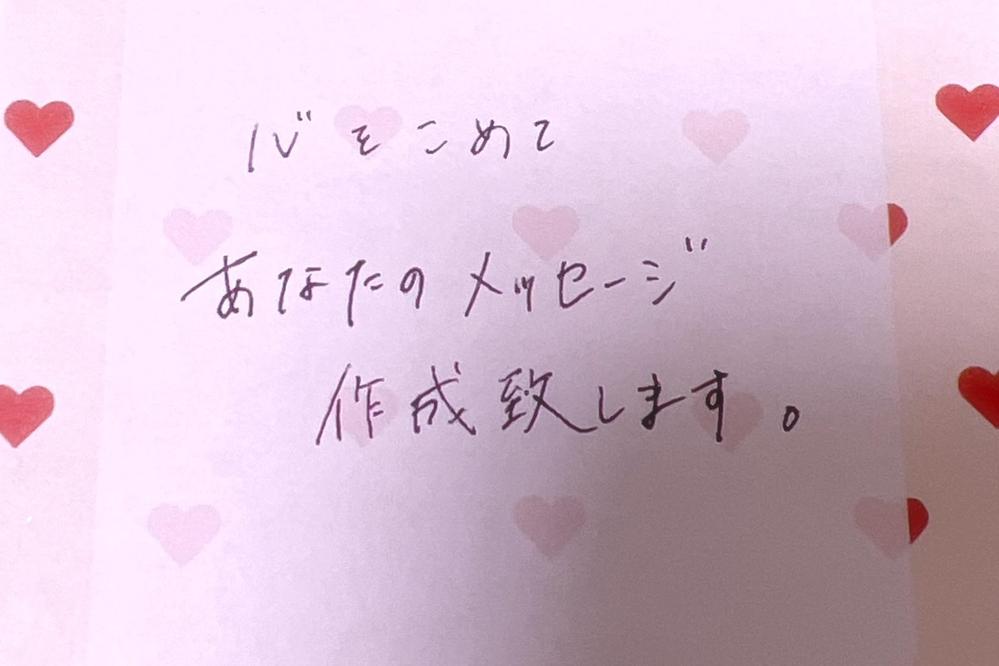 心をこめて
あなたのメッセージ
作成致します。